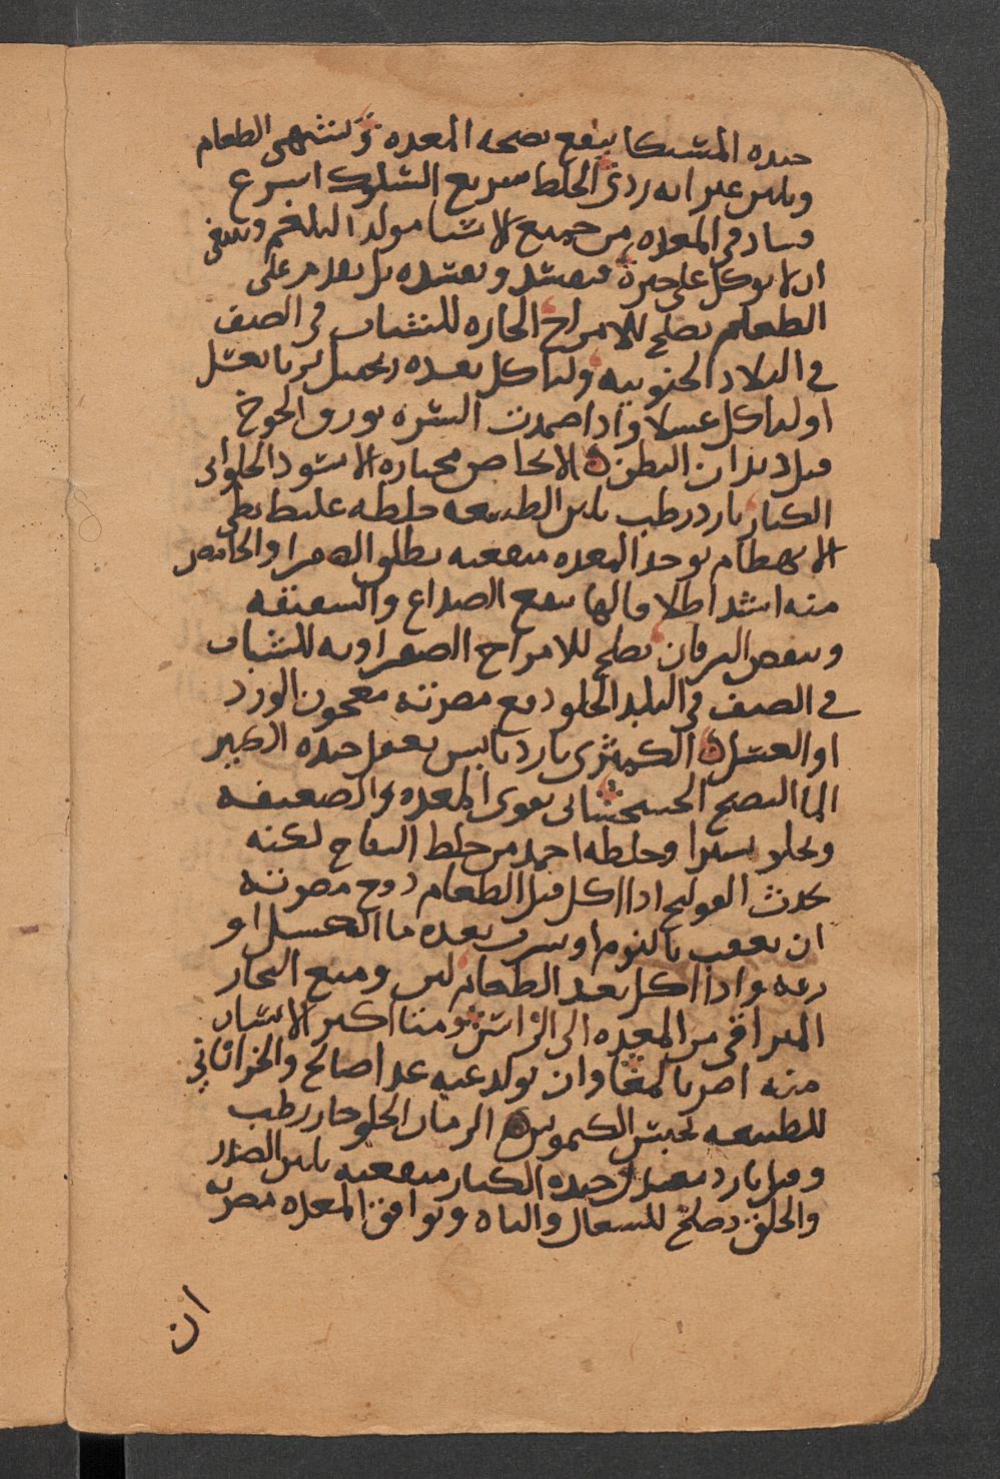 جيده المشكا ينفع بصحه المعده وتشتهى الطعام
ويلين غير انه ردى الخلط سريع السلوك اسرع
فساد فى المعده من جميع الاشيا مولد البلغم وينبغى
ان لا يوكل على غيره فيفسد ويفسده بل يقدم على
الطعام يصلح للامزاج الحاره للشباب فى الصيف
فى البلاد الجنوبيه ولياكل بعده زنجبيل مربا بعسل
او لياكل عسلا واذا ضمدت السره بورق الخوخ
قتل ديدان البطن الاجاص مختاره الاسود الحلواى
الكبار بارد رطب يلين الطبيعه خلطه غليظ بطى
الانهظام يوخذ المعده منفعته يطلق الصفرا والحامض
منه اشد اطلاقا لها ينفع الصداع والشقيقه
وينقص اليرقان يصلح للامزاج الصفراويه للشباب
فى الصيف فى البلد الحلو دفع مضرته معجون الورد
او العسل الكمثرى بارد يابس يعقل جيده الكبير
الما النضيج الخشخشانى يقوى المعده والضعيفه
ويجلو يسيرا وخلطه احمد من خلط التفاح لكنه
يحدث القولنج اذا اكل قبل الطعام دفع مضرته
ان يعقب بالنوم او يشرب بعده ما العسل او
ربه واذا اكل بعد الطعام لين ومنع البخار
المتراقى من المعده الى الراس ومتا اكثر الانسان
منه اضر بالمعا وان يولد عنه غذا صالح والخراسانى
للطبيعه يحبس الكيموس الرمان الحلو حار رطب
وقيل بارد معتدل جيده الكبار منفعته يلين الصدر
والحلق وصالح للسعال والباه ويوافق المعده مضرته
ان